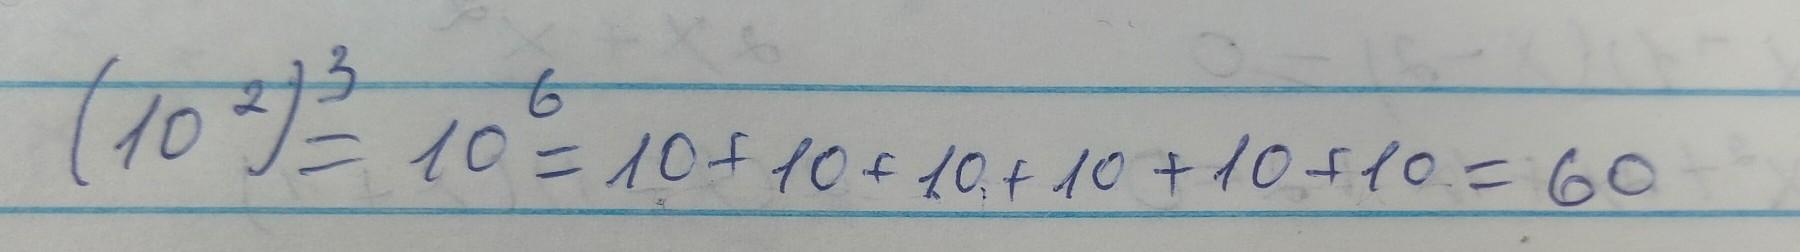 (10²)³ = 10⁶ = 10 + 10 + 10 + 10 + 10 + 10 = 60